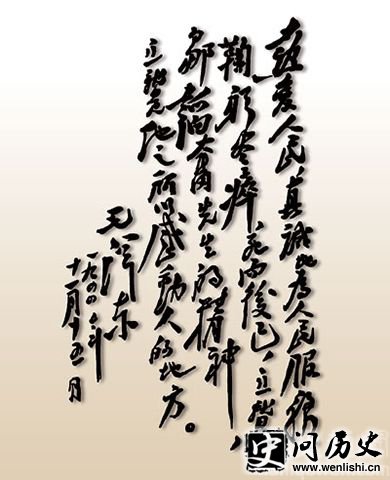 热爱人民，真誠地為人民服務，
鞠躬尽瘁，死而後已，這就是
鄒韜奮先生的精神，
這就是他之所以感動人的地方。
毛澤东
一九四四年
十一月十五日
史问历史
www.wenlishi.cn